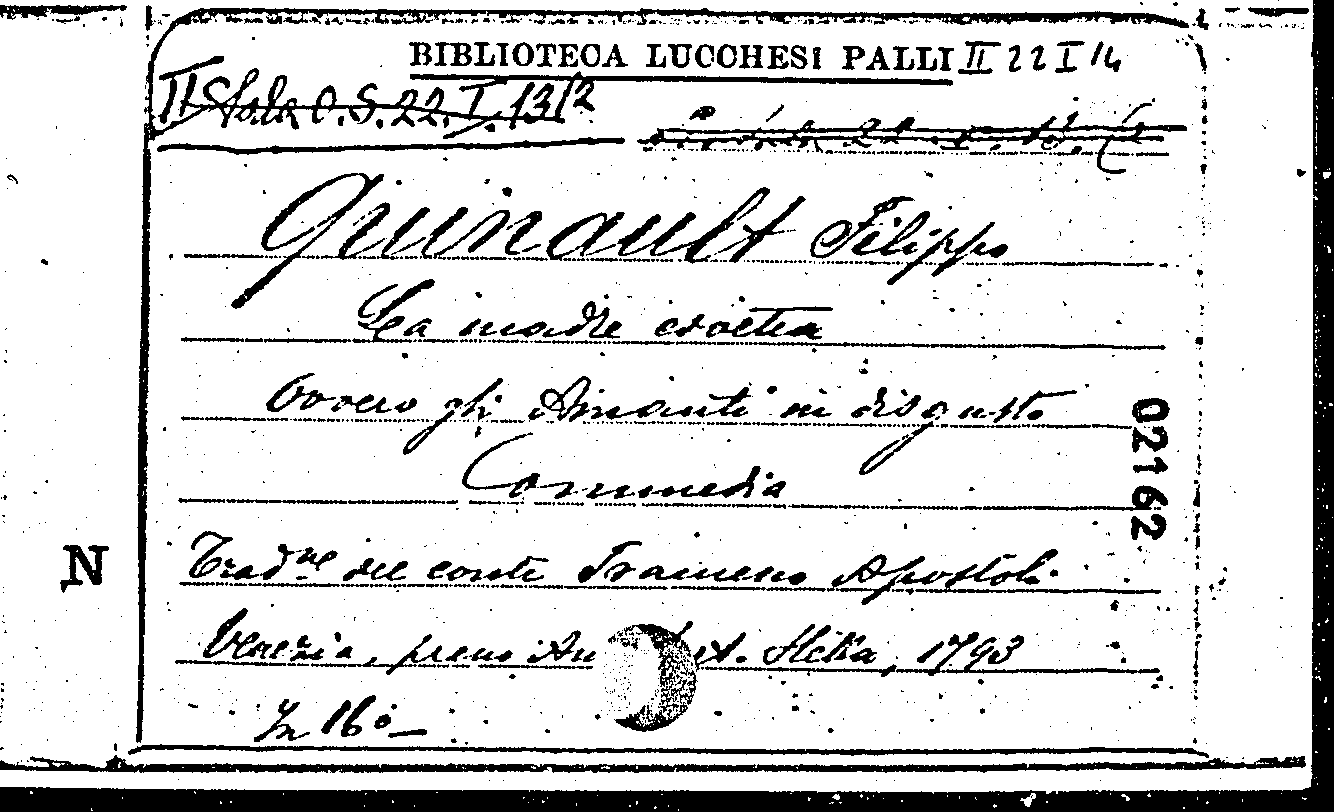 BIBLIOTECA LUCCHESI PALLI II 22 I 14
II Sala C. S. 22. I. 13/2
Quinault Filippo
La madre civetta
Ovvero gli Amanti in disgusto
Commedia
02162
N
Trad.ne del conte Apostoli
Venezia, presso 1793
In 16º